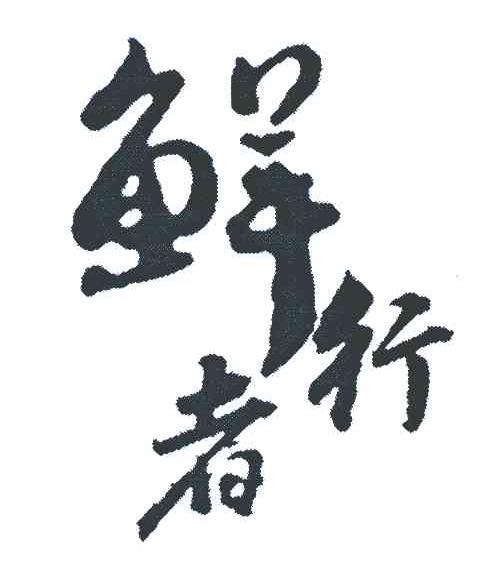 鲜行者